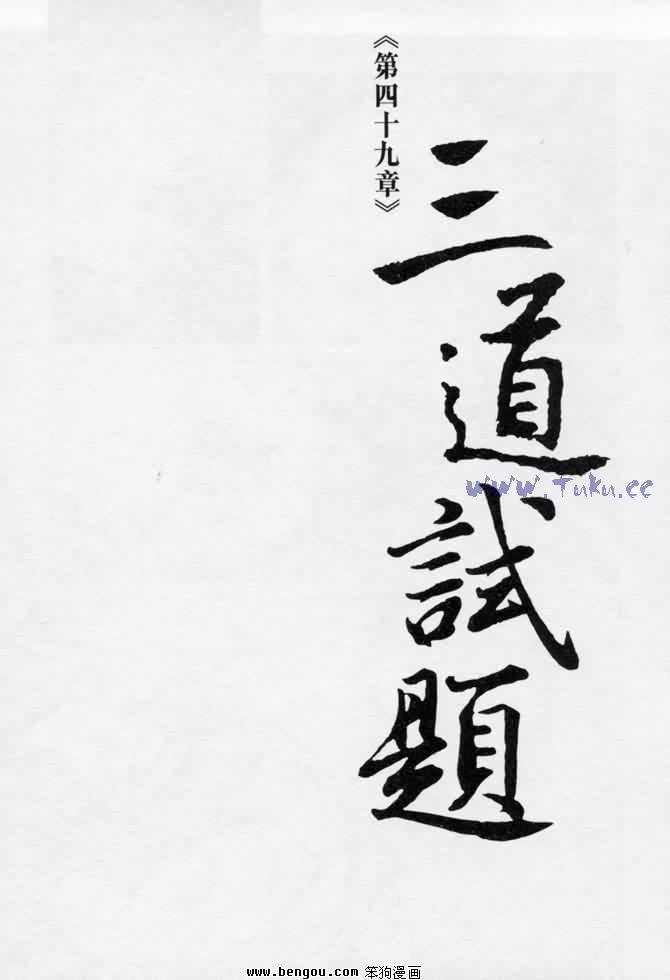 《第四十九章》
三道試題
www.Tuku.cc
www.bengou.com 笨狗漫画